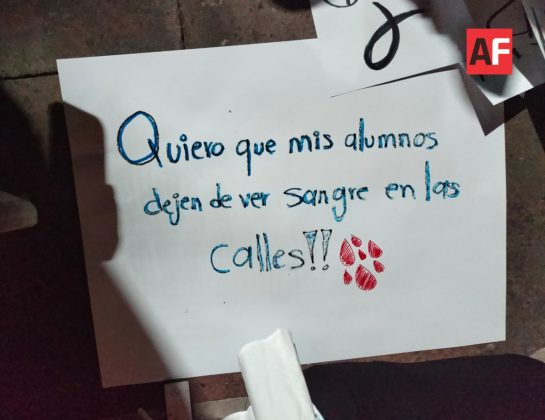 AF
Quiero que mis alumnos
dejen de ver sangre en las
calles!!